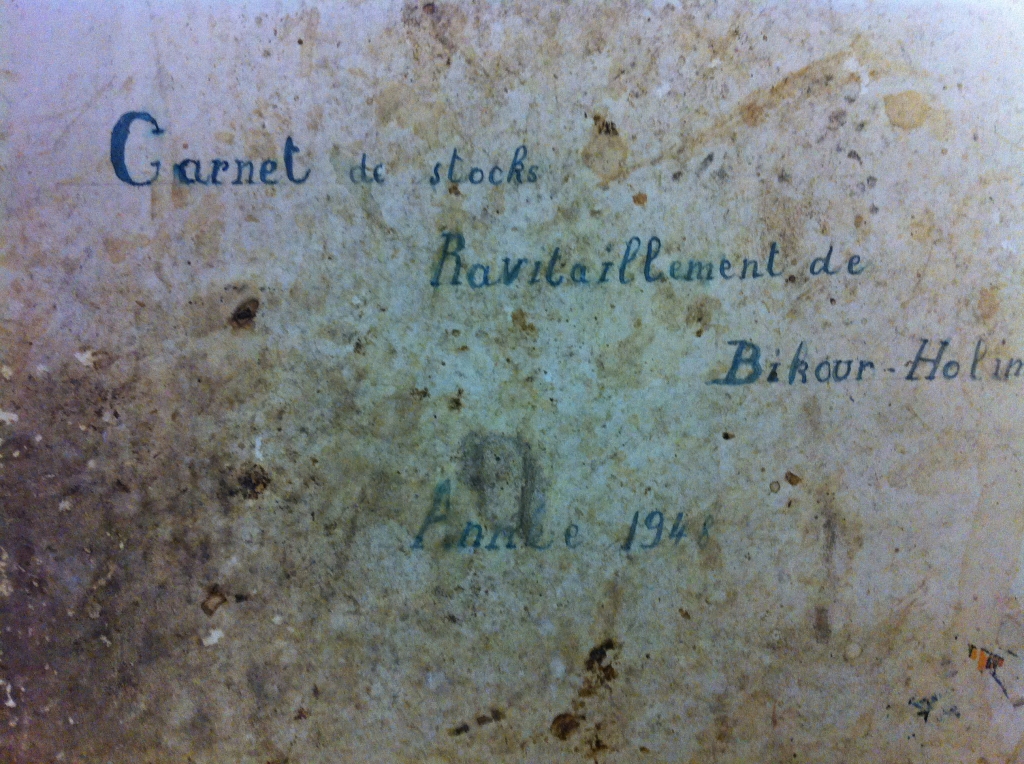 Carnet de stocks
Ravitaillement de
Bikour-Holim
Année 1948